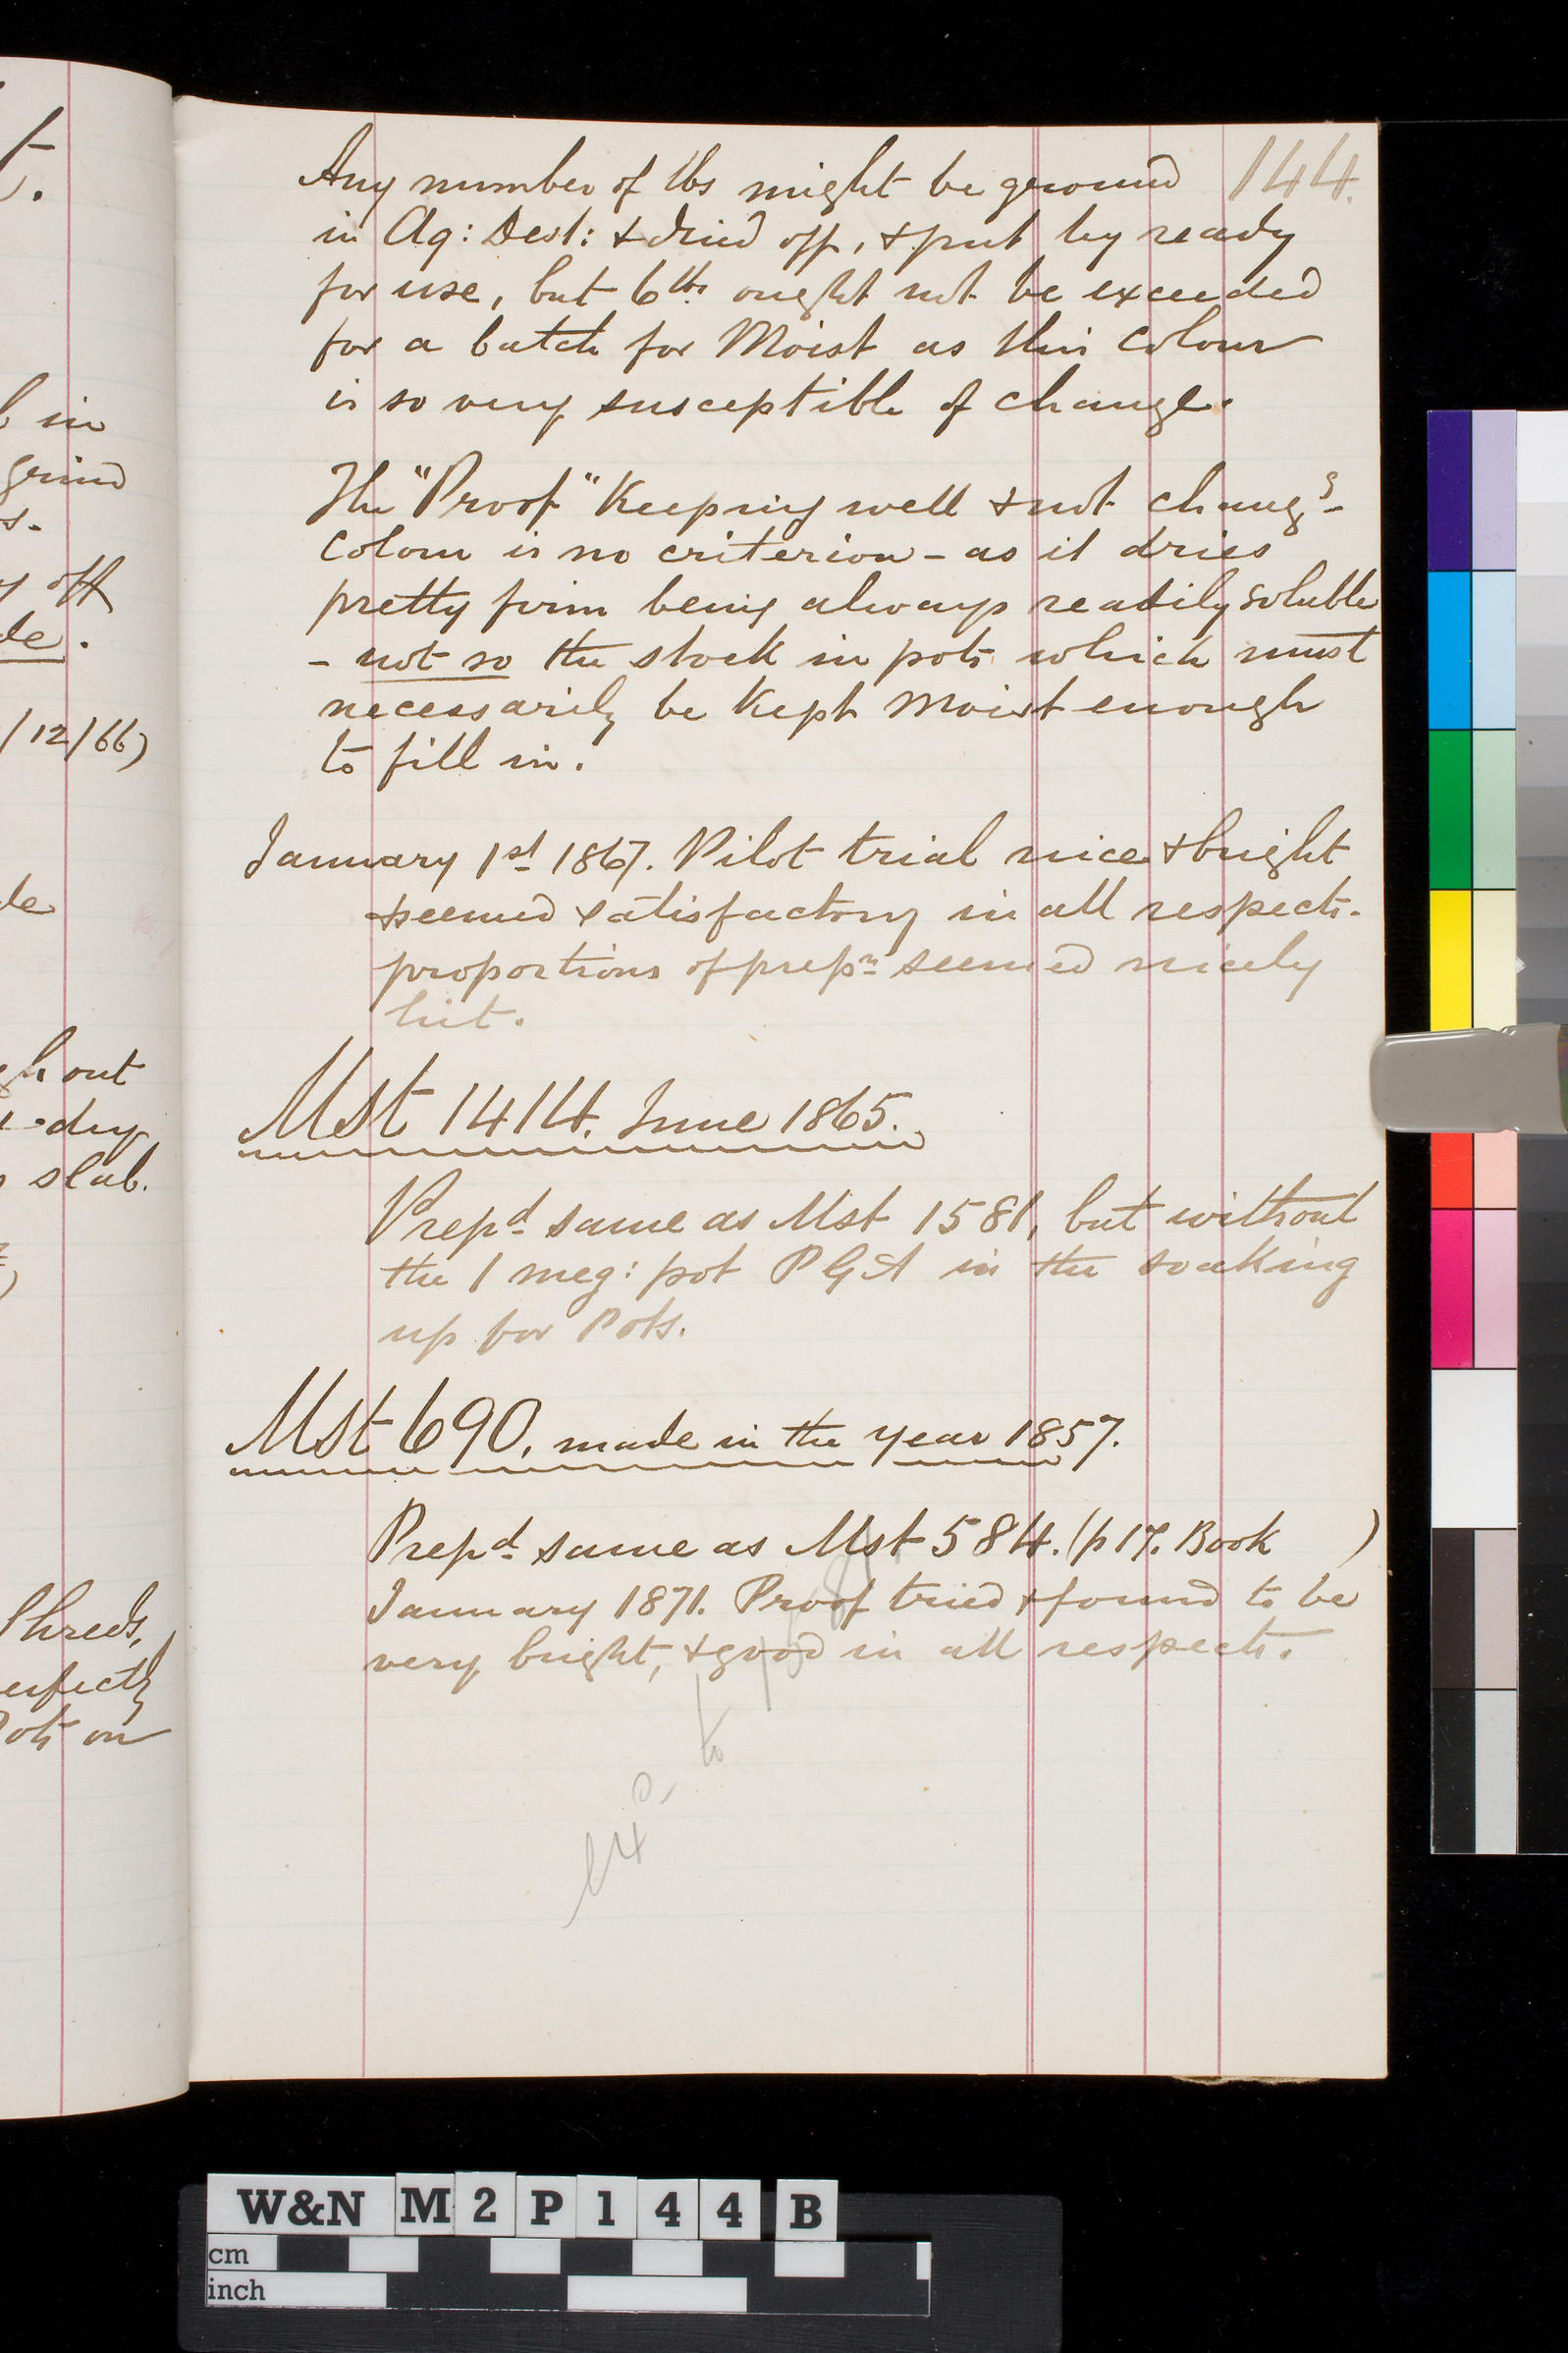 t.
l in
grind
s.
y off
de.
/12/66)
de
gh out
dry
slab.
Shreds,
erfectly
Pots on
144.
Any number of lbs might be ground
in Aq: Dest: & dried off, & put by ready
for use, but 6 lbs ought not be exceeded
for a batch for Moist as this Colour
is so very susceptible of change.
The "Proof" Keeping well & not changg-
Colour is no criterion - as it dries
pretty firm being always readily soluble
- not so the stock in pots which must
necessarily be Kept Moist enough
to fill in.
January 1st 1867. Pilot trial nice & bright
& seemed satisfactory in all respects.
proportions of prepn seemed nicely
hit.
Mst 1414. June 1865.
Prepd same as Mst 1581, but without
the 1 meg: pot PGA in the soaking
up for Pots.
Mst 690, made in the year 1857.
Prepd same as Mst 584. (p 17. Book )
January 1871. Proof tried & found to be
very bright, & good in all respects.
exd to
W&N M2P144B
cm
inch